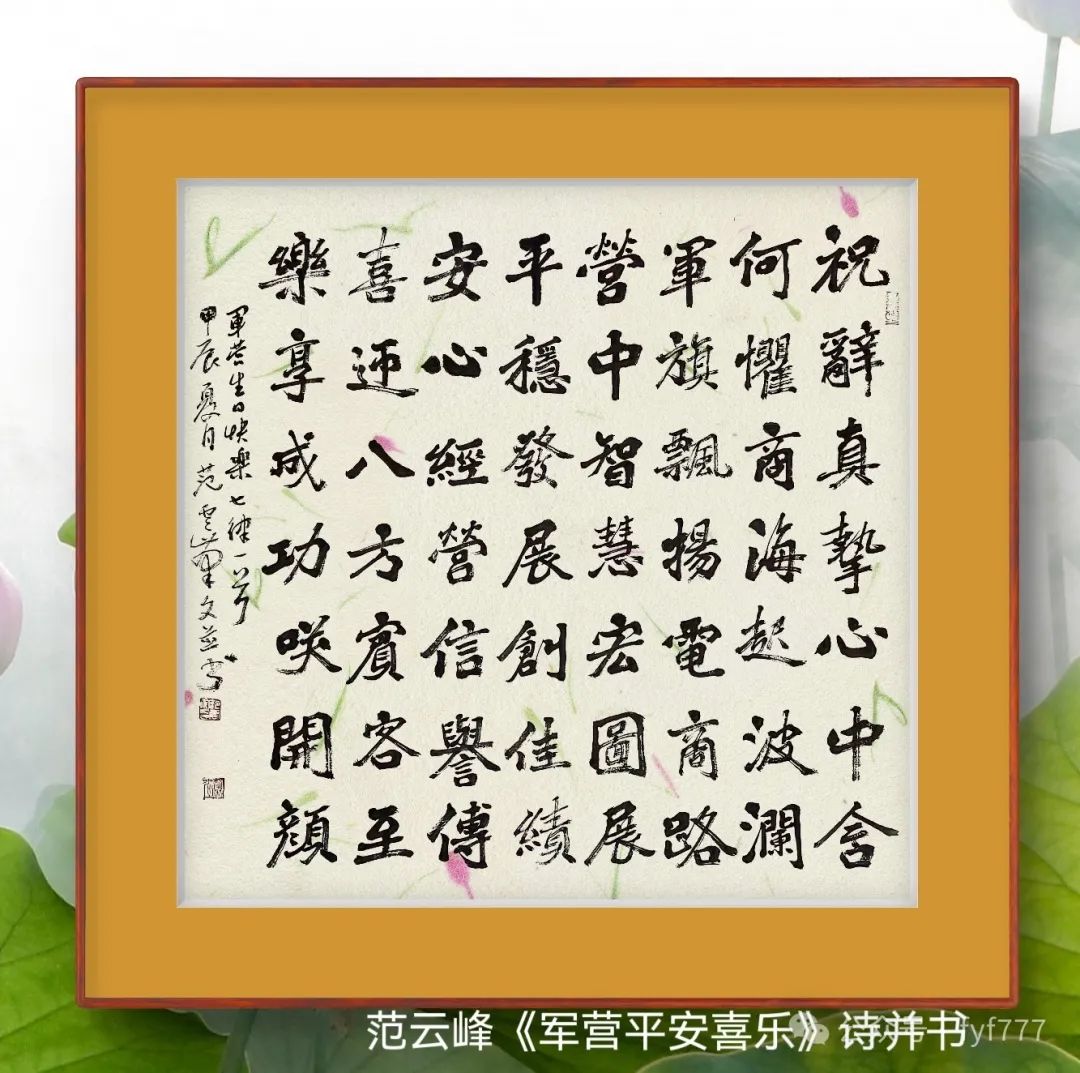 祝辭真摯心中含
何懼商海起波瀾
軍旗飄揚電商路
營中智慧宏圖展
平穩發展創佳績
安心經營信譽傳
喜迎八方賓客至
樂享成功咲開顏
军营生日快樂七律一首
甲辰夏月范云峯文並書
范云峰《军营平安喜乐》诗并书
fyf777